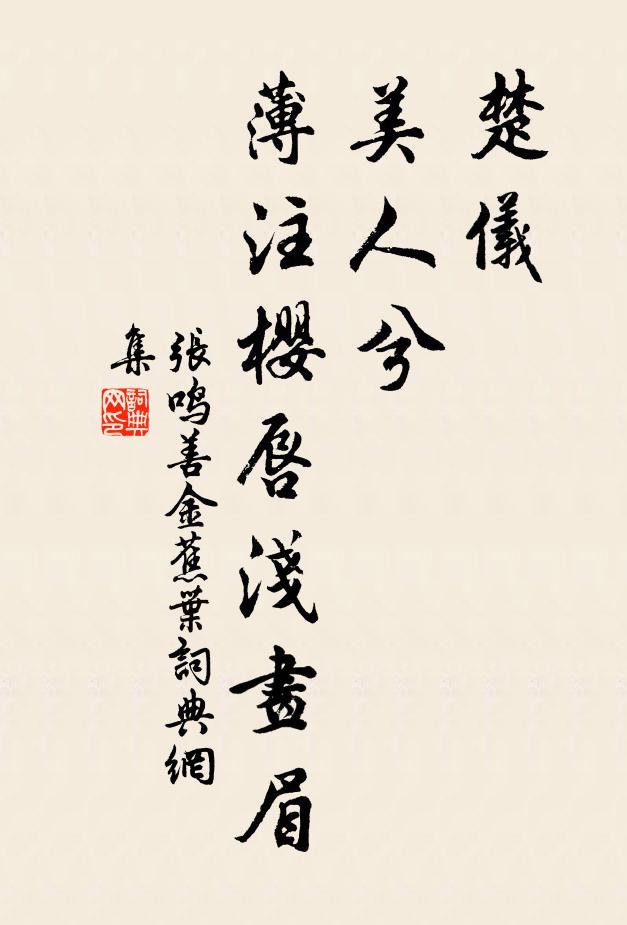 楚儀
美人兮
薄注櫻唇淺畫眉
張鳴善金蕉葉詞典網
集
詞典
网印